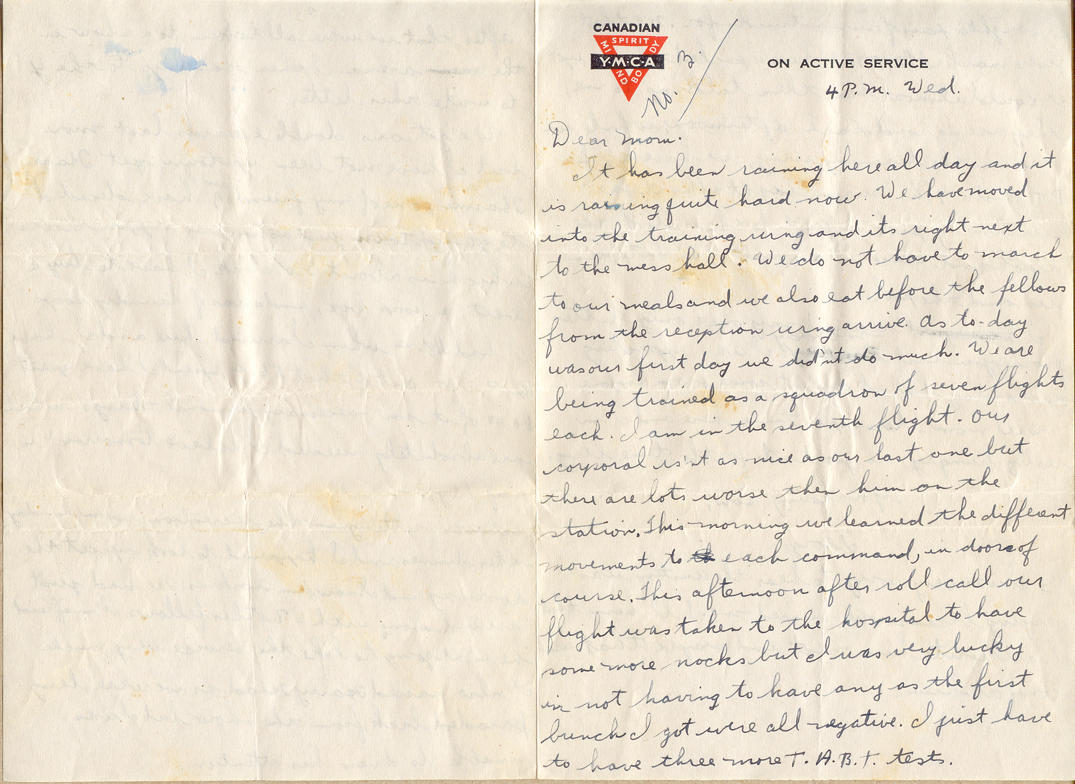 CANADIAN
SPIRIT
MIND
BODY
Y·M·C·A
No. 3.
ON ACTIVE SERVICE
4 P.M. Wed.
Dear Mom.
It has been raining here all day and it
is raining quite hard now. We have moved
into the training wing and its right next
to the mess hall. We do not have to march
to our meals and we also eat before the fellows
from the reception wing arrive. As to-day
was our first day we did'nt do much. We are
being trained as a squadron of seven flights
each. I am in the seventh flight. Our
corporal is'nt as nice as our last one but
there are lots worse then him on the
station. This morning we learned the different
movements to each command, in doors of
course. This afternoon after roll call our
flight was taken to the hospital to have
some more nocks but I was very lucky
in not having to have any as the first
bunch I got were all negative. I just have
to have three more T.A.B.T. tests.